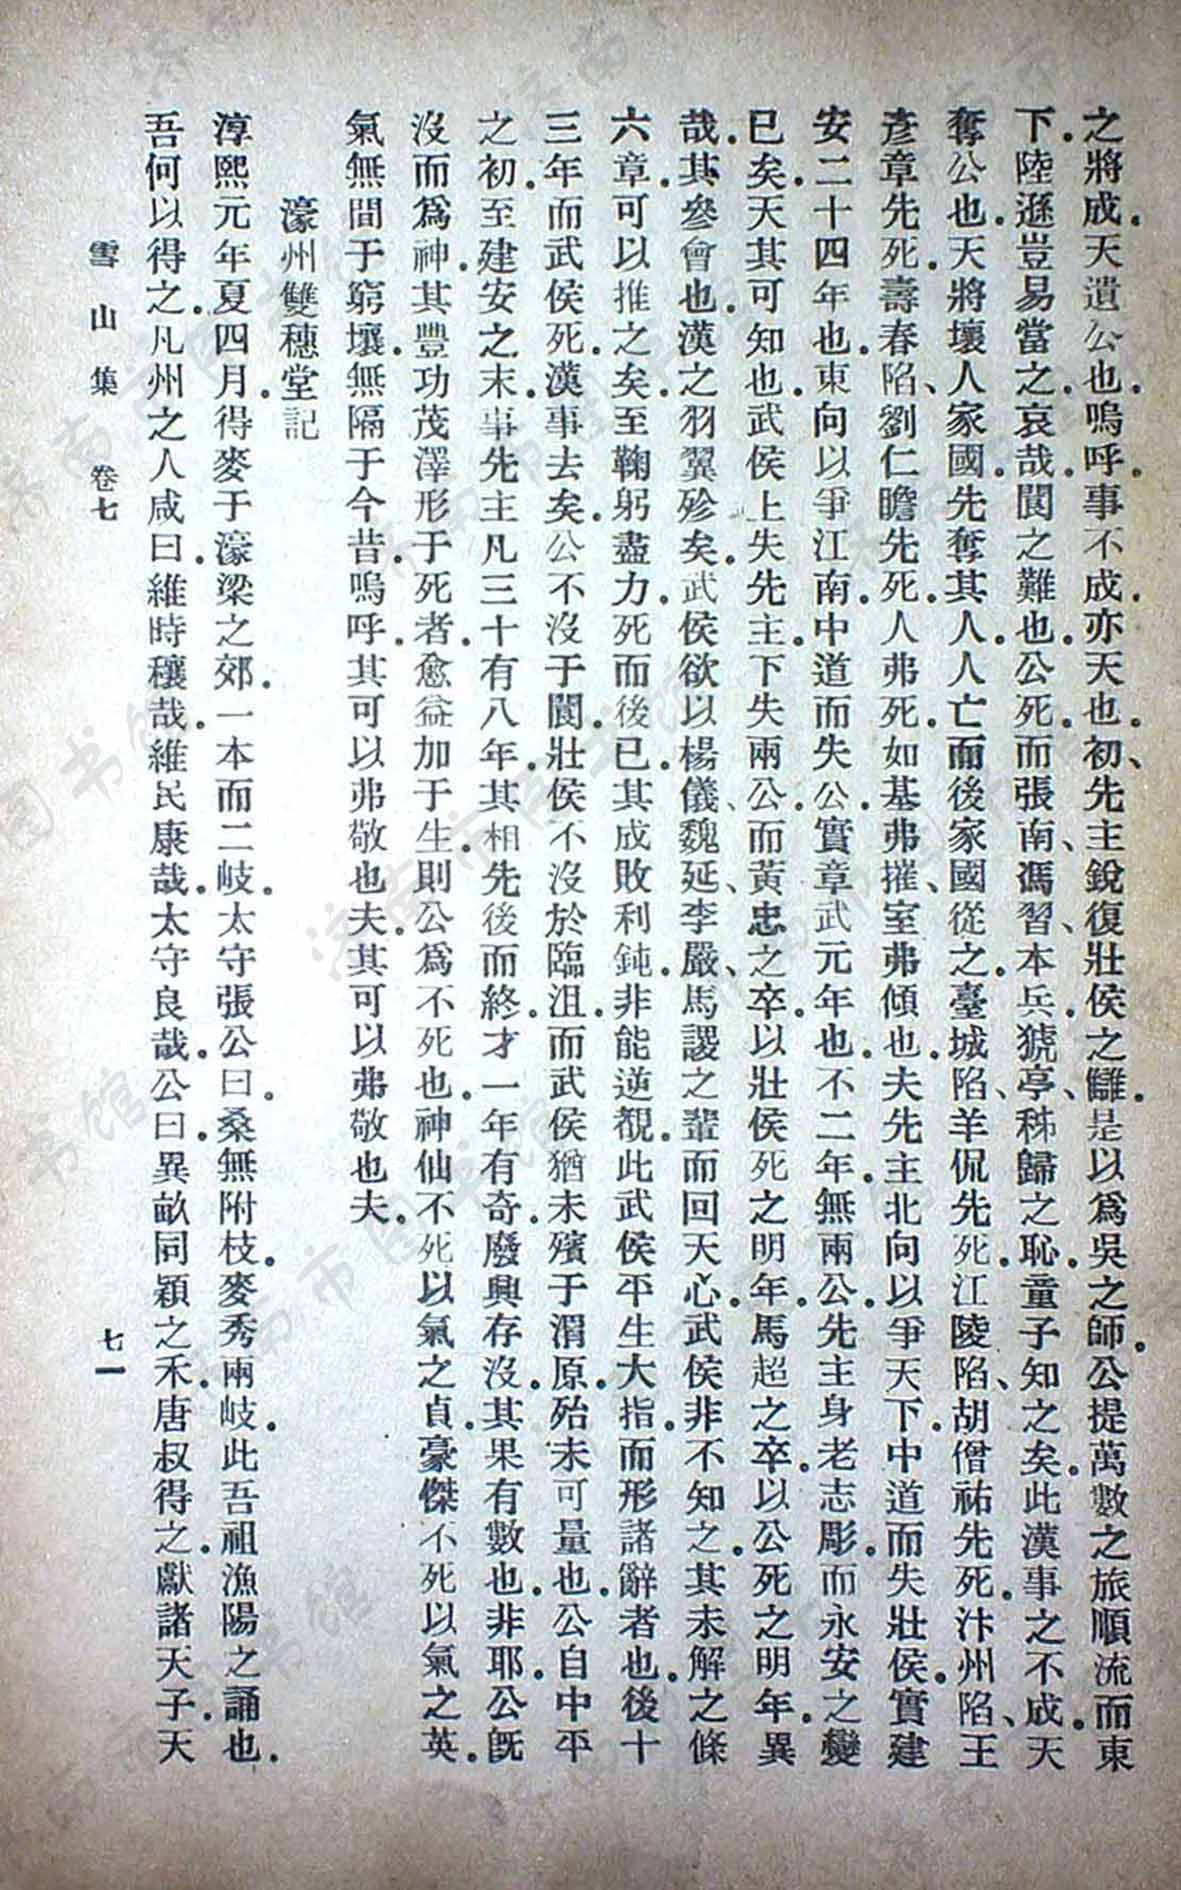 之將成。天遺公也。嗚呼。事不成。亦天也。初、先主銳復壯侯之讎。是以爲吳之師。公提萬數之旅。順流而東
下。陸遜豈易當之。哀哉。閬之難也。公死。而張南、馮習、本兵。猇亭、秭歸之恥。童子知之矣。此漢事之不成。天
奪公也。天將壞人家國。先奪其人。人亡而後家國從之。臺城陷、羊侃先死。江陵陷、胡僧祐先死。汴州陷、王
彥章先死。壽春陷、劉仁瞻先死。人弗死。如基弗摧、室弗傾也。夫先主北向以爭天下。中道而失壯侯。實建
安二十四年也。東向以爭江南。中道而失公。實章武元年也。不二年。無兩公。先主身老志彫。而永安之變
已矣。天其可知也。武侯上失先主。下失兩公。而黃忠之卒。以壯侯死之明年。馬超之卒。以公死之明年。異
哉。其參會也。漢之羽翼殄矣。武侯欲以楊儀、魏延、李嚴、馬謖之輩而回天心。武侯非不知之。其未解之條
六章。可以推之矣。至鞠躬盡力。死而後已。其成敗利鈍。非能逆覩。此武侯平生大指。而形諸辭者也。後十
三年而武侯死。漢事去矣。公不沒于閬。壯侯不沒於臨沮。而武侯猶未殯于渭原。殆未可量也。公自中平
之初。至建安之末。事先主凡三十有八年。其相先後而終。才一年有奇。廢興存沒。其果有數也。非耶。公既
沒而爲神。其豐功茂澤形于死者。愈益加于生。則公爲不死也。神仙不死以氣之貞。豪傑不死以氣之英。
氣無間于窮壤。無隔于今昔。嗚呼。其可以弗敬也夫。其可以弗敬也夫。
濠州雙穗堂記
淳熙元年夏四月。得麥于濠梁之郊。一本而二岐。太守張公曰。桑無附枝。麥秀兩岐。此吾祖漁陽之誦也。
吾何以得之。凡州之人咸曰。維時穰哉。維民康哉。太守良哉。公曰。異畝同穎之禾。唐叔得之。獻諸天子。天
雪山集 卷七 七一